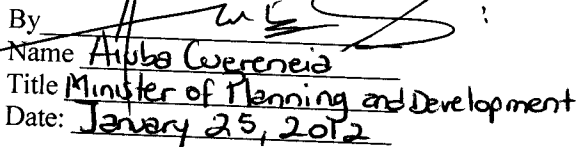 By
Name Aiuba Cuereneia
Title Minister of Planning and Development
Date: January 25, 2012